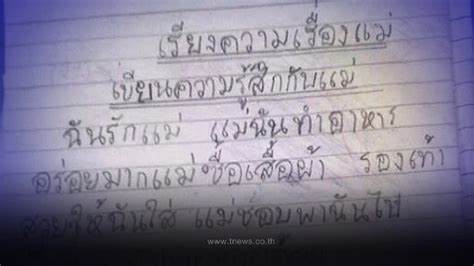 เรียงความเรื่องแม่
เขียนความรู้สึกกับแม่
ฉันรักแม่ แม่ฉันทำอาหาร
อร่อยมากแม่ซื้อเสื้อผ้า รองเท้า
สวยให้ฉันใส่ แม่ชอบพาฉันไป
www.tnews.co.th